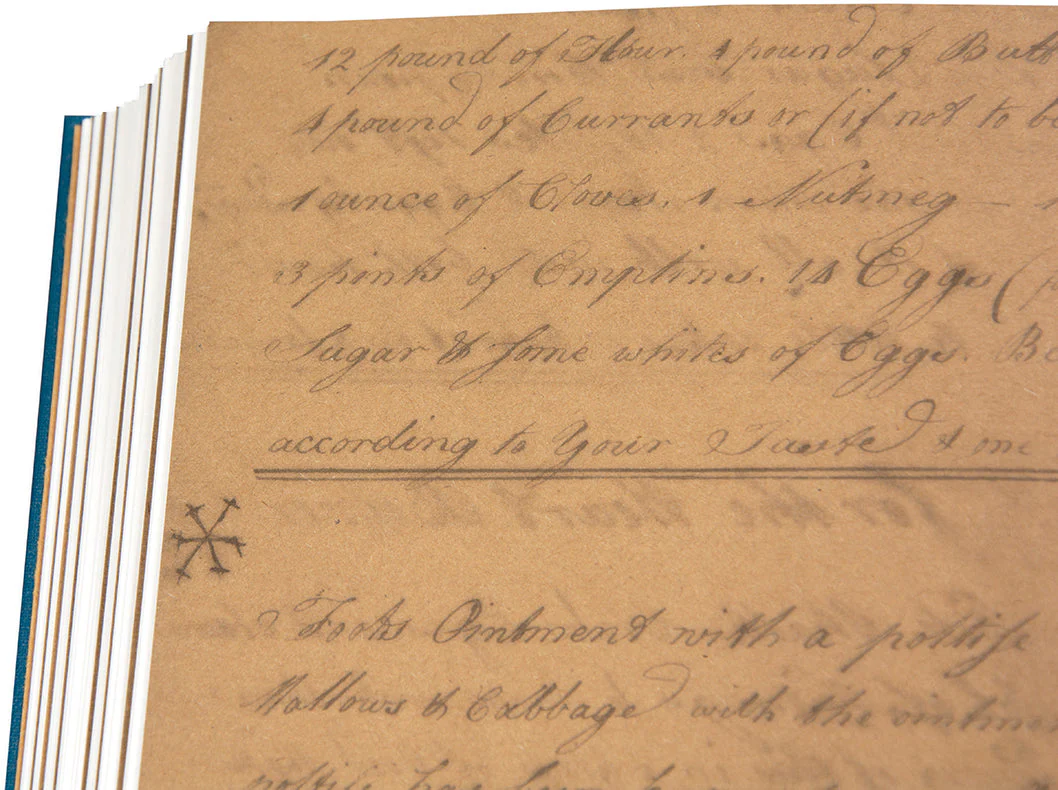 12 pound of Flour. 4 pound of Butt
4 pound of Currants or (if not to be
1 ounce of Cloves. 1 Nutmeg —
3 pints of Emptins. 14 Eggs (
Sugar & some whites of Eggs. Be
according to Your Taste & me
Foots Ointment with a poltise
Mallows & Cabbage with the ointmen
poltise has